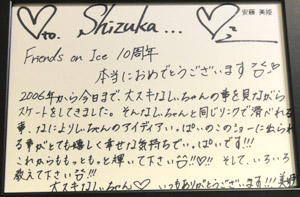 安藤 美姫
to. Shizuka ...
Friends on Ice 10周年
本当におめでとうございます
2006年から今日まで、大スキなしぃちゃんの事を見ながら
スケートをしてきました。そんなしぃちゃんと同じリンクで滑べれる
事、なによりしぃちゃんのアイディアいっぱいのこのショーに出られ
る事がとても嬉しく幸せな気持ちでいっぱいです!!!
これからももっともっと輝いて下さい!! !! そして、いろいろ
教えて下さい!!!
大スキなしぃちゃん いつもありがとうございます!!! 美姫